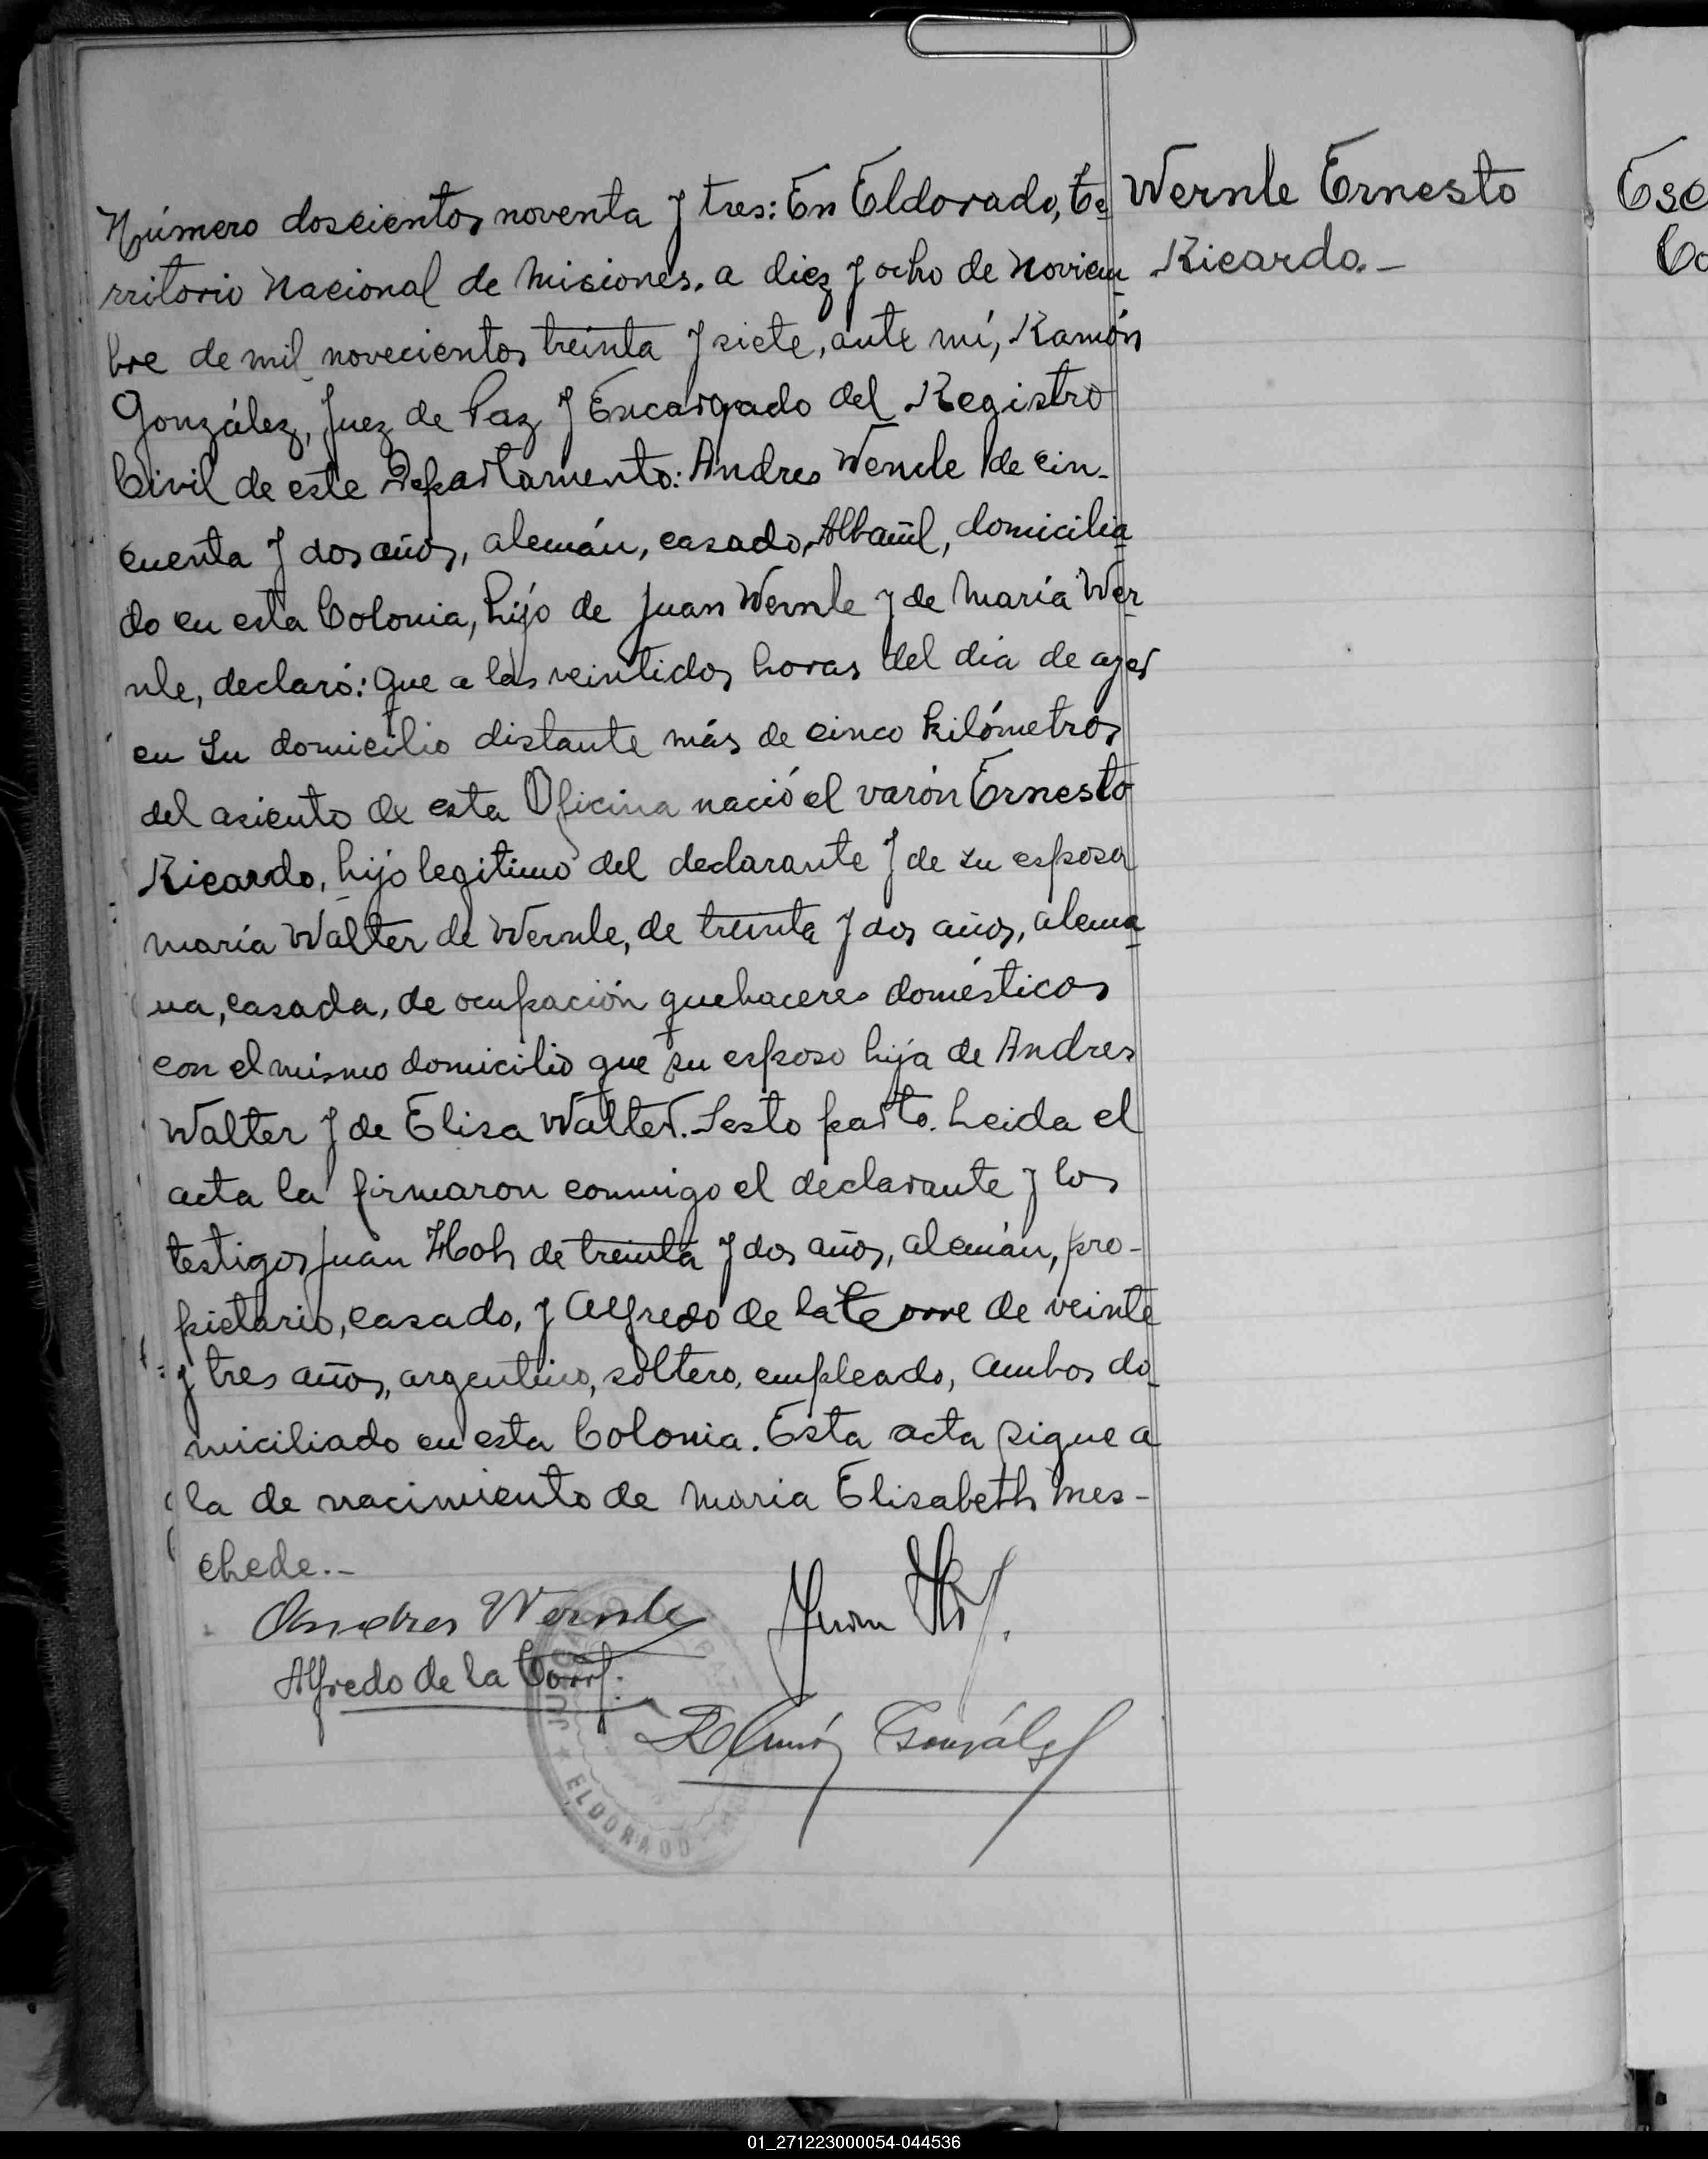 Número doscientos noventa y tres: En Eldorado, Te
rritorio Nacional de Misiones, a diez y ocho de Noviem
bre de mil novecientos treinta y siete, ante mí, Ramón
González, Juez de Paz y Encargado del Registro
Civil de este Departamento: Andres Wernle de cin-
cuenta y dos años, alemán, casado, Albañil, domicilia
do en esta Colonia, hijo de Juan Wernle y de María Wer
nle, declaró: Que a las veintidos horas del dia de ayer
en su domicilio distante más de cinco kilómetros
del asiento de esta Oficina nació el varón Ernesto
Ricardo, hijo legitimo del declarante y de su esposa
María Walter de Wernle, de treinta y dos años, alema
na, casada, de ocupación quehaceres domésticos
con el mismo domicilio que su esposo hija de Andres
Walter y de Elisa Walter. Sesto parto. Leida el
acta la firmaron conmigo el declarante y los
testigos Juan Hoh de treinta y dos años, alemán, pro-
pietario, casado, y Alfredo de la Torre de veinte
y tres años, argentino, soltero, empleado, ambos do
miciliado en esta Colonia. Esta acta sigue a
la de nacimiento de Maria Elisabeth Mes-
chede.--
Wernle Ernesto
Ricardo.-
Andres Wernle
Juan
Alfredo de la Torre
Ramón González
JUZGADO
PAZ
ELDORADO
Ese
01_271223000054-044536